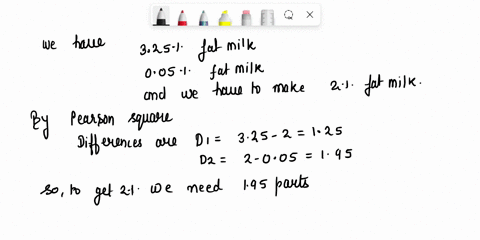 we have 3.25%. fat milk
0.05%. fat milk
and we have to make 2%. fat milk.
By Pearson square
Differences are D1 = 3.25 - 2 = 1.25
D2 = 2 - 0.05 = 1.95
so, to get 2%. we need 1.95 parts